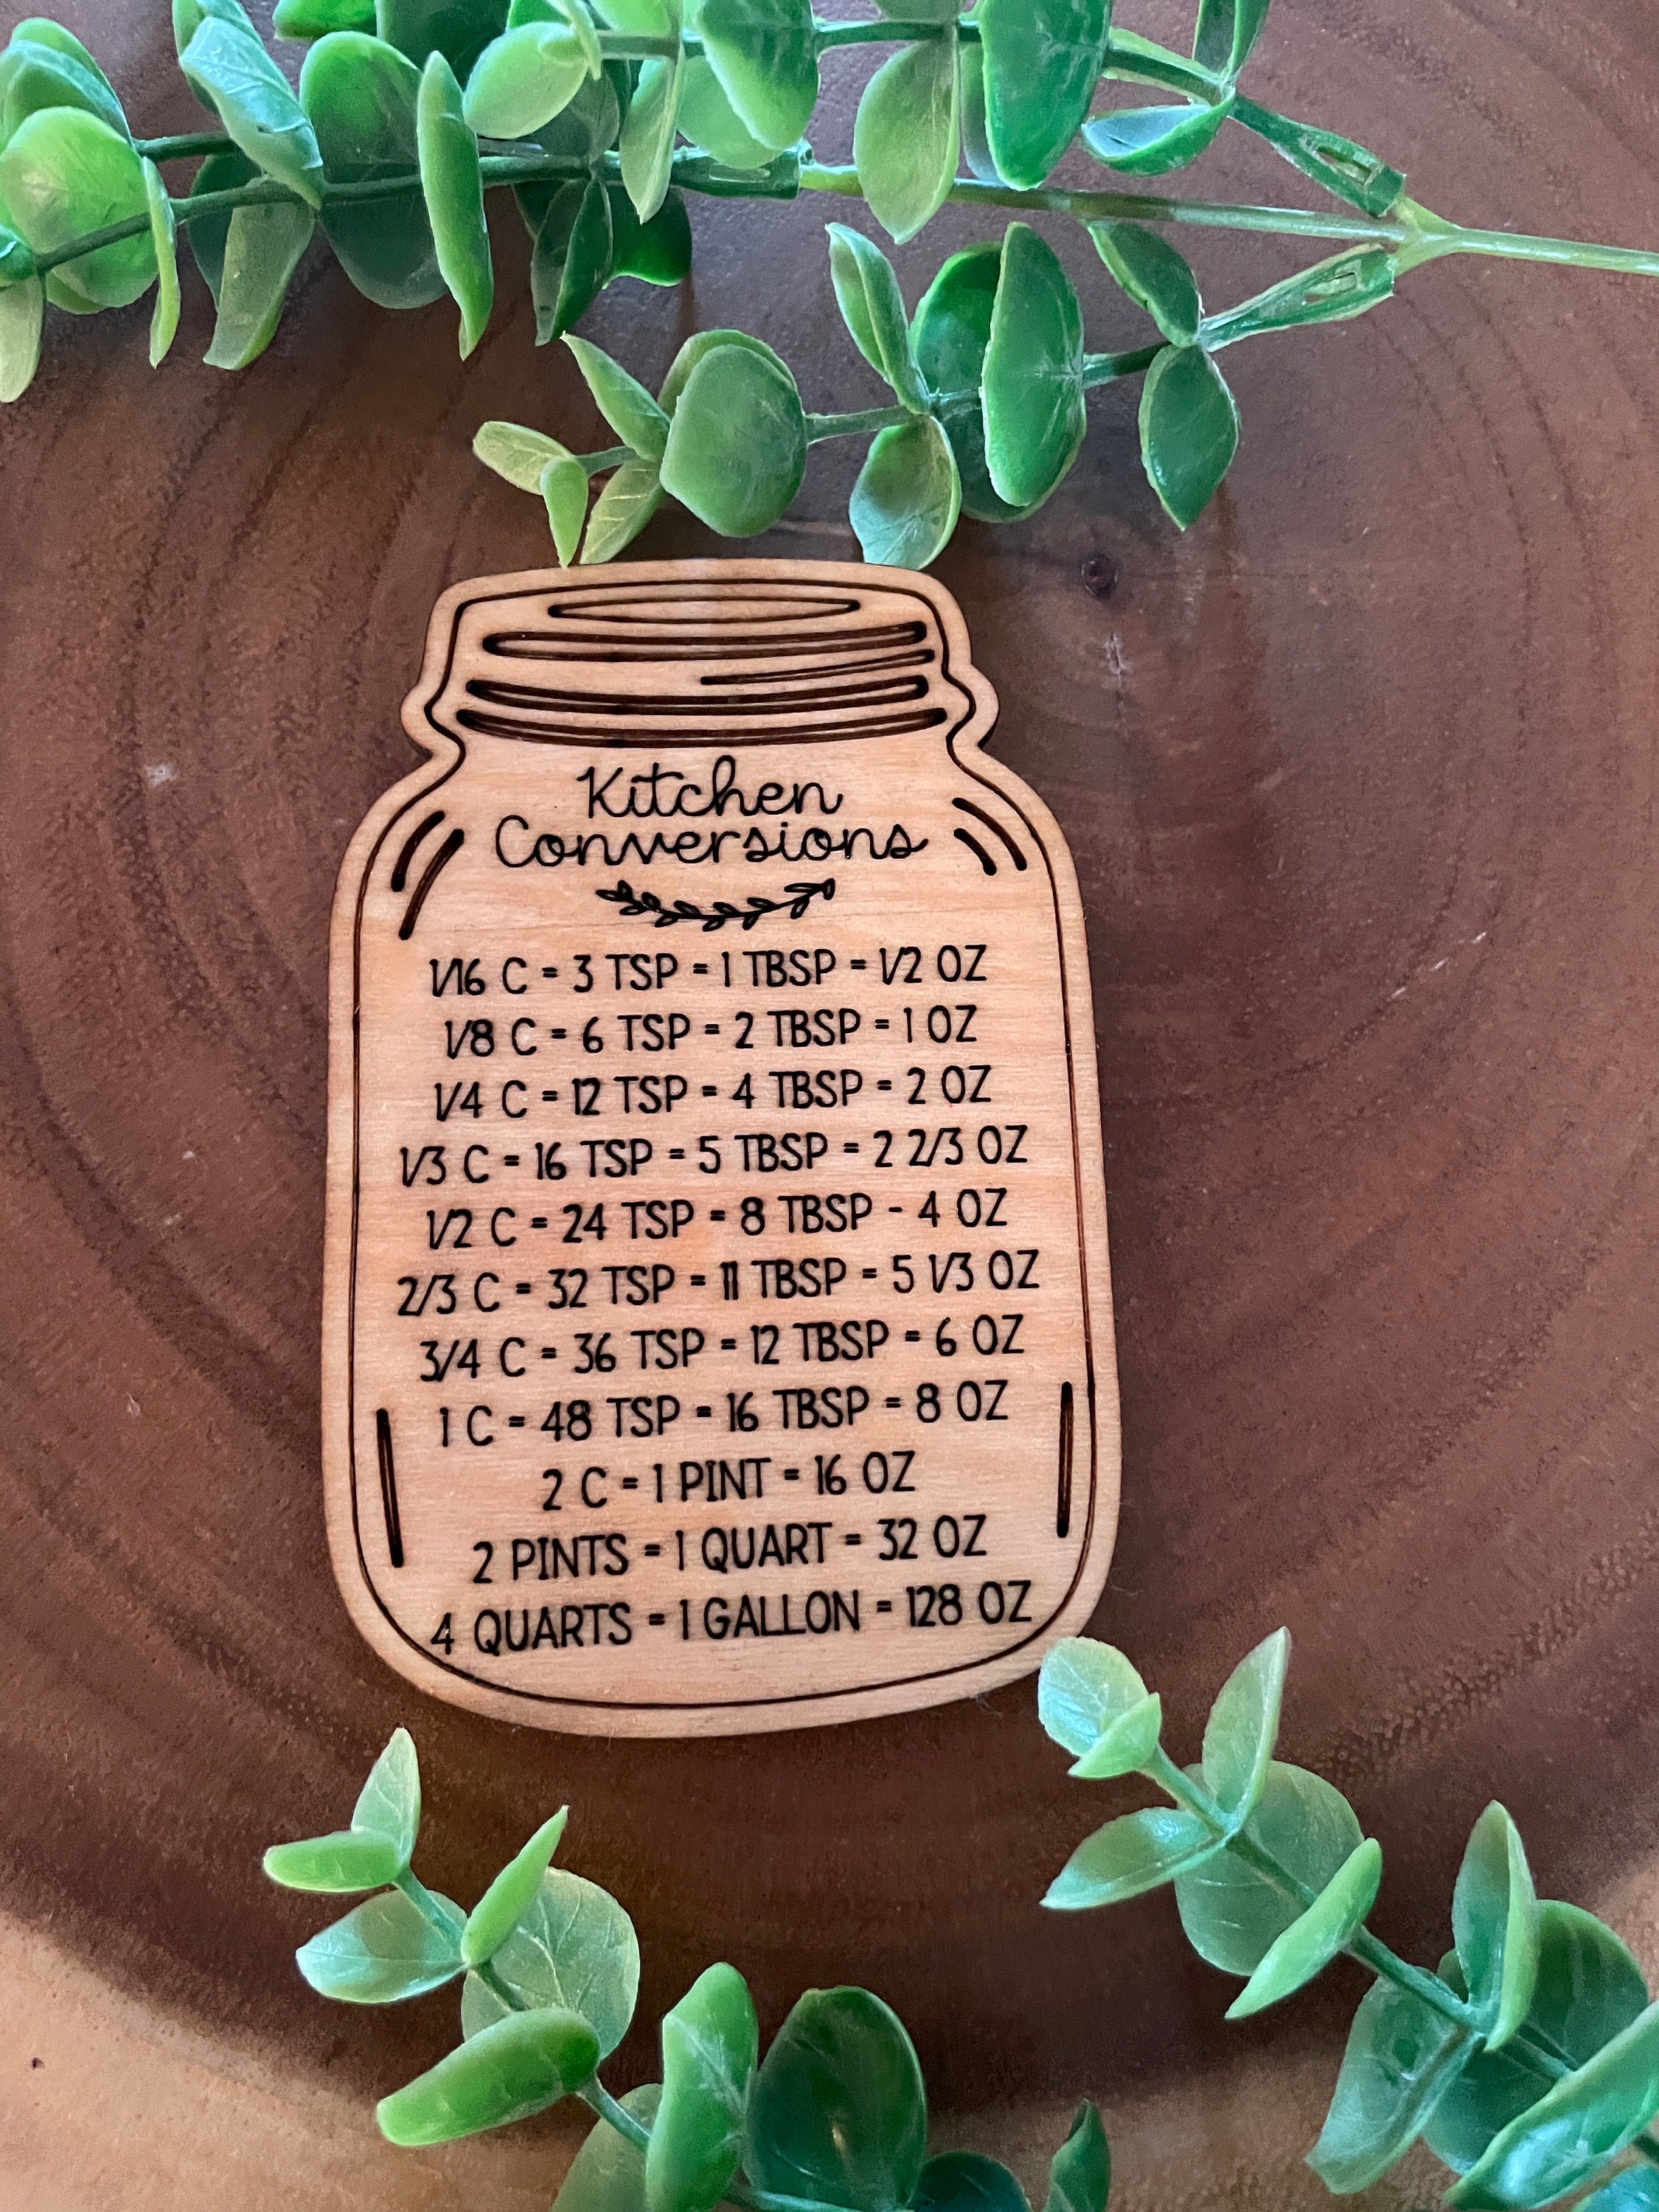 Kitchen
Conversions
1/16 C = 3 TSP = 1 TBSP = 1/2 OZ
1/8 C = 6 TSP = 2 TBSP = 1 OZ
1/4 C = 12 TSP = 4 TBSP = 2 OZ
1/3 C = 16 TSP = 5 TBSP = 2 2/3 OZ
1/2 C = 24 TSP = 8 TBSP - 4 OZ
2/3 C = 32 TSP = 11 TBSP = 5 1/3 OZ
3/4 C = 36 TSP = 12 TBSP = 6 OZ
1 C = 48 TSP = 16 TBSP = 8 OZ
2 C = 1 PINT = 16 OZ
2 PINTS = 1 QUART = 32 OZ
4 QUARTS = 1 GALLON = 128 OZ